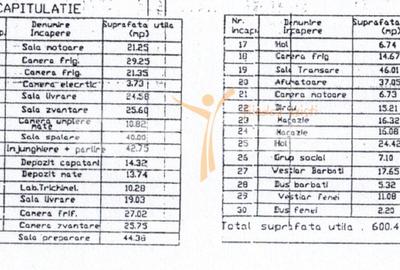 CAPITULATIE
Denumire Incapere Suprafata utila (mp)
Sala motoare 21.25
Camera frig. 29.25
Camera frig. 21.35
Camera elecrtic 3.73
Sala livrare 24.58
Sala zvantare 25.60
Camera umplere mate 10.82
Sala spalare 40.00
Injunghiere + parlire 42.75
Depozit capatani 14.32
Depozit mate 13.74
Lab.Trichinel. 10.28
Sala livrare 19.03
Camera frif. 27.02
Camera zvantare 25.75
Sala preparare 44.36
Nr. incap. Denumire Incapere Suprafata (mp)
17 Hol 6.74
18 Camera frig 14.67
19 Sala Transare 46.01
20 Afumatoare 37.05
21 Camera motoare 6.73
22 Birou 15.21
23 Magazie 16.32
24 Magazie 16.08
25 Hol 24.42
26 Grup social 7.10
27 Vestiar Barbati 17.65
28 Dus barbati 5.32
29 Vestiar femei 11.08
30 Dus femei 2.20
Total suprafata utila . 600.4